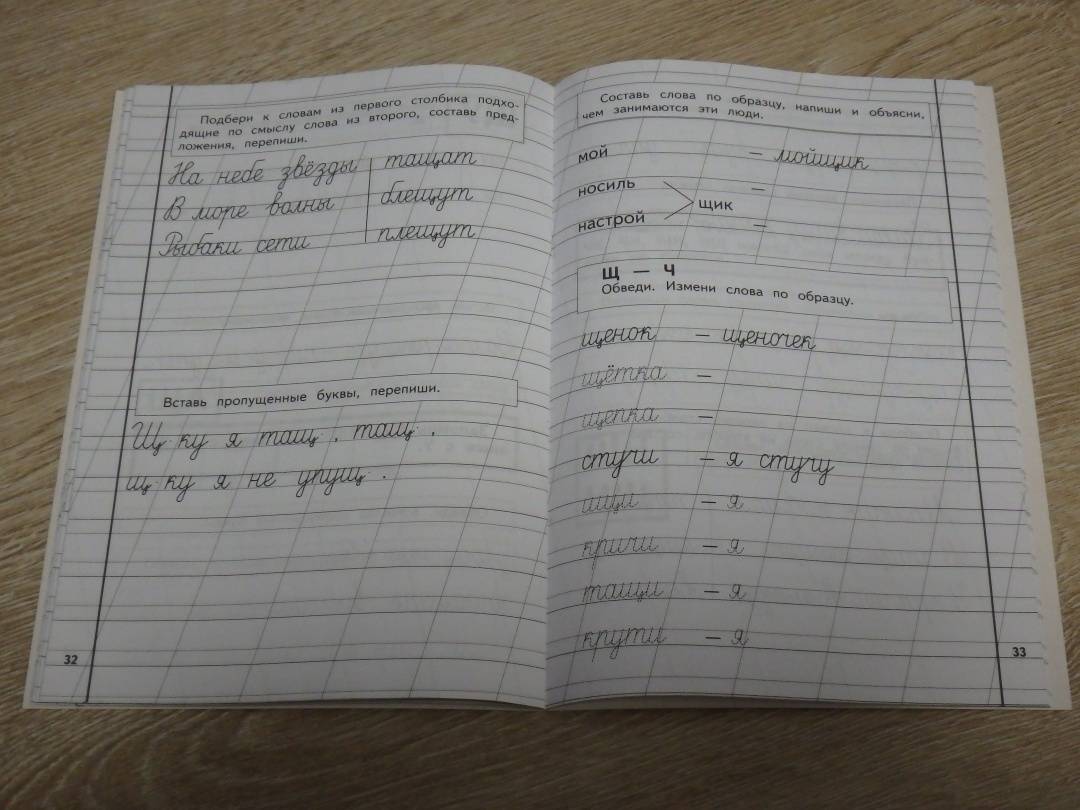 Подбери к словам из первого столбика подхо-
дящие по смыслу слова из второго, составь пред-
ложения, перепиши.
На небе звёзды тащат
В море волны блещут
Рыбаки сети плещут
Вставь пропущенные буквы, перепиши.
Щ ку я тащ , тащ .
щ ку я не упущ .
32
Составь слова по образцу, напиши и объясни,
чем занимаются эти люди.
мой – мойщик
носиль –
щик
настрой –
Щ — Ч
Обведи. Измени слова по образцу.
щенок – щеночек
щётка –
щепка –
стучи – я стучу
ищи – я
кричи – я
тащи – я
крути – я
33